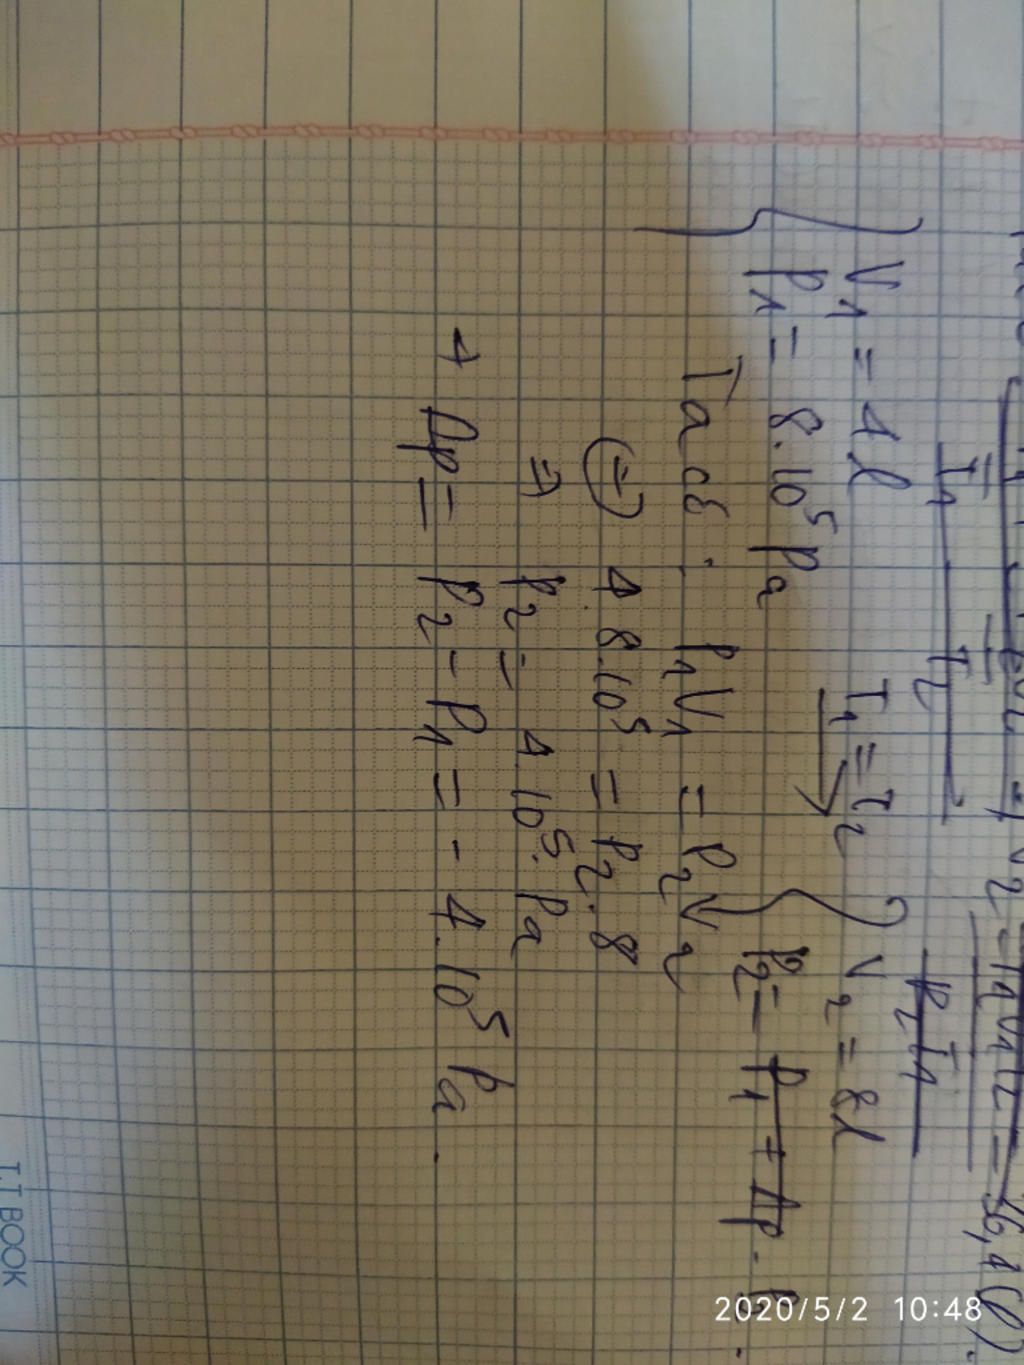 V₁ = 4l
P₁ = 8.10⁵ Pa
T₁ = T₂
V₂ = 8l
P₂ = P₁ + Δp.
Ta có: P₁V₁ = P₂V₂
(=) 4.8.10⁵ = P₂.8
⇒ P₂ = 4.10⁵. Pa
+ Δp = P₂ - P₁ = - 4.10⁵ Pa.
T.T BOOK
2020/5/2 10:48